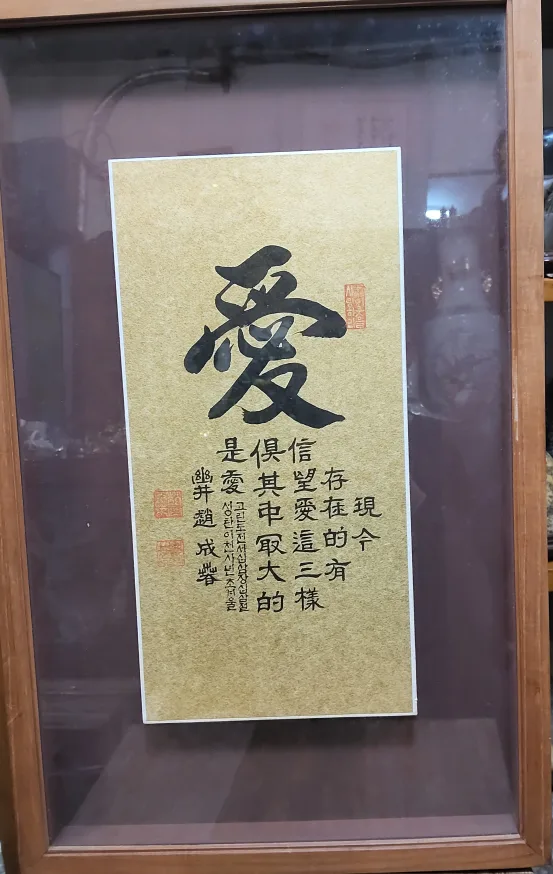 愛
現今
存在的有
信望愛這三樣
俱其中冣大的
是愛
고린도전서십삼장십삼절
성탄이천사년초겨울
井趙成